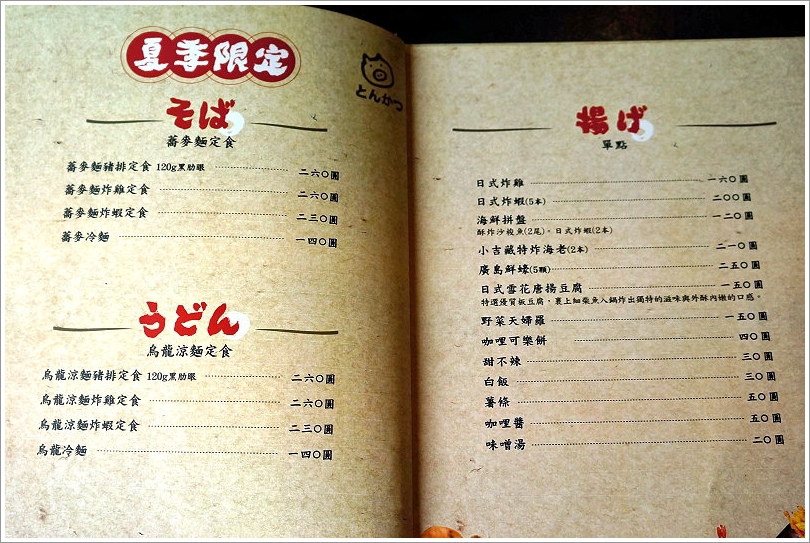 夏季限定
とんかつ
そば
蕎麥麵定食
蕎麥麵豬排定食 120g黑肋眼 二六〇圓
蕎麥麵炸雞定食 二六〇圓
蕎麥麵炸蝦定食 二三〇圓
蕎麥冷麵 一四〇圓
うどん
烏龍涼麵定食
烏龍涼麵豬排定食 120g黑肋眼 二六〇圓
烏龍涼麵炸雞定食 二六〇圓
烏龍涼麵炸蝦定食 二三〇圓
烏龍冷麵 一四〇圓
揚げ
單點
日式炸雞 一六〇圓
日式炸蝦(5本) 二〇〇圓
海鮮拼盤 一二〇圓
酥炸沙梭魚(2尾)。日式炸蝦(2本)
小吉藏特炸海老(2本) 二一〇圓
廣島鮮蠔(5顆) 二五〇圓
日式雪花唐揚豆腐 一五〇圓
特選優質板豆腐，裹上細柴魚入鍋炸出獨特的滋味與外酥內嫩的口感。
野菜天婦羅 一五〇圓
咖哩可樂餅 四〇圓
甜不辣 三〇圓
白飯 三〇圓
薯條 五〇圓
咖哩醬 五〇圓
味噌湯 二〇圓